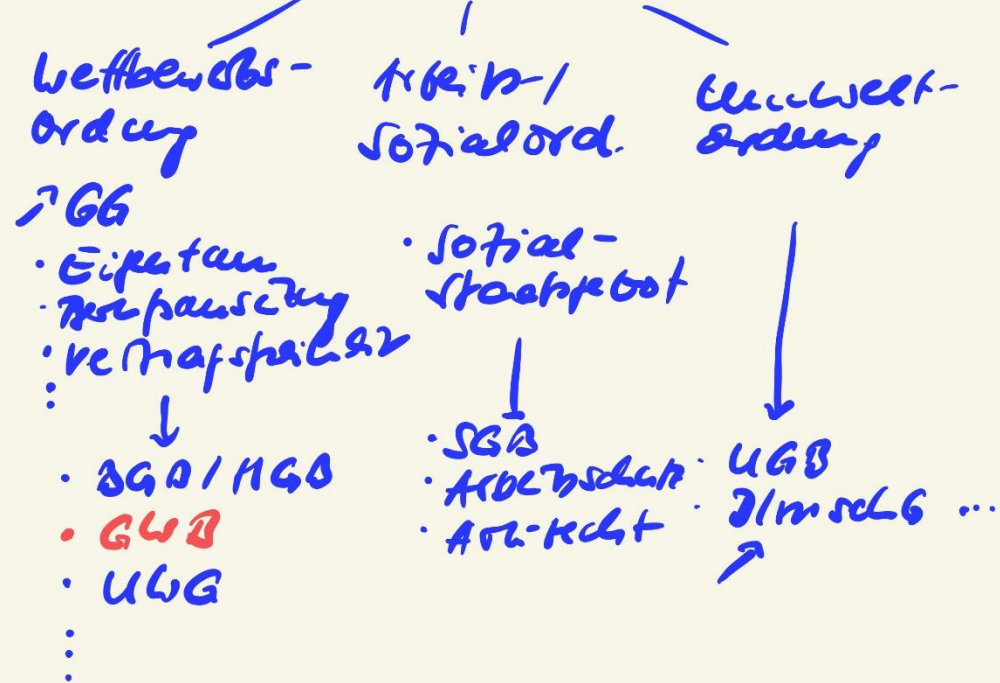 Wettbewerbs-
ordnung
↗ GG
· Eigentum
· Vertragsfreiheit
· BGB / HGB
· GWB
· UWG
Arbeits- /
Sozialord.
· Sozial-
staatsgebot
· SGB
· Arbeitsschutz
· Arb-recht
Umwelt-
ordnung
· UGB
· BImschG ...